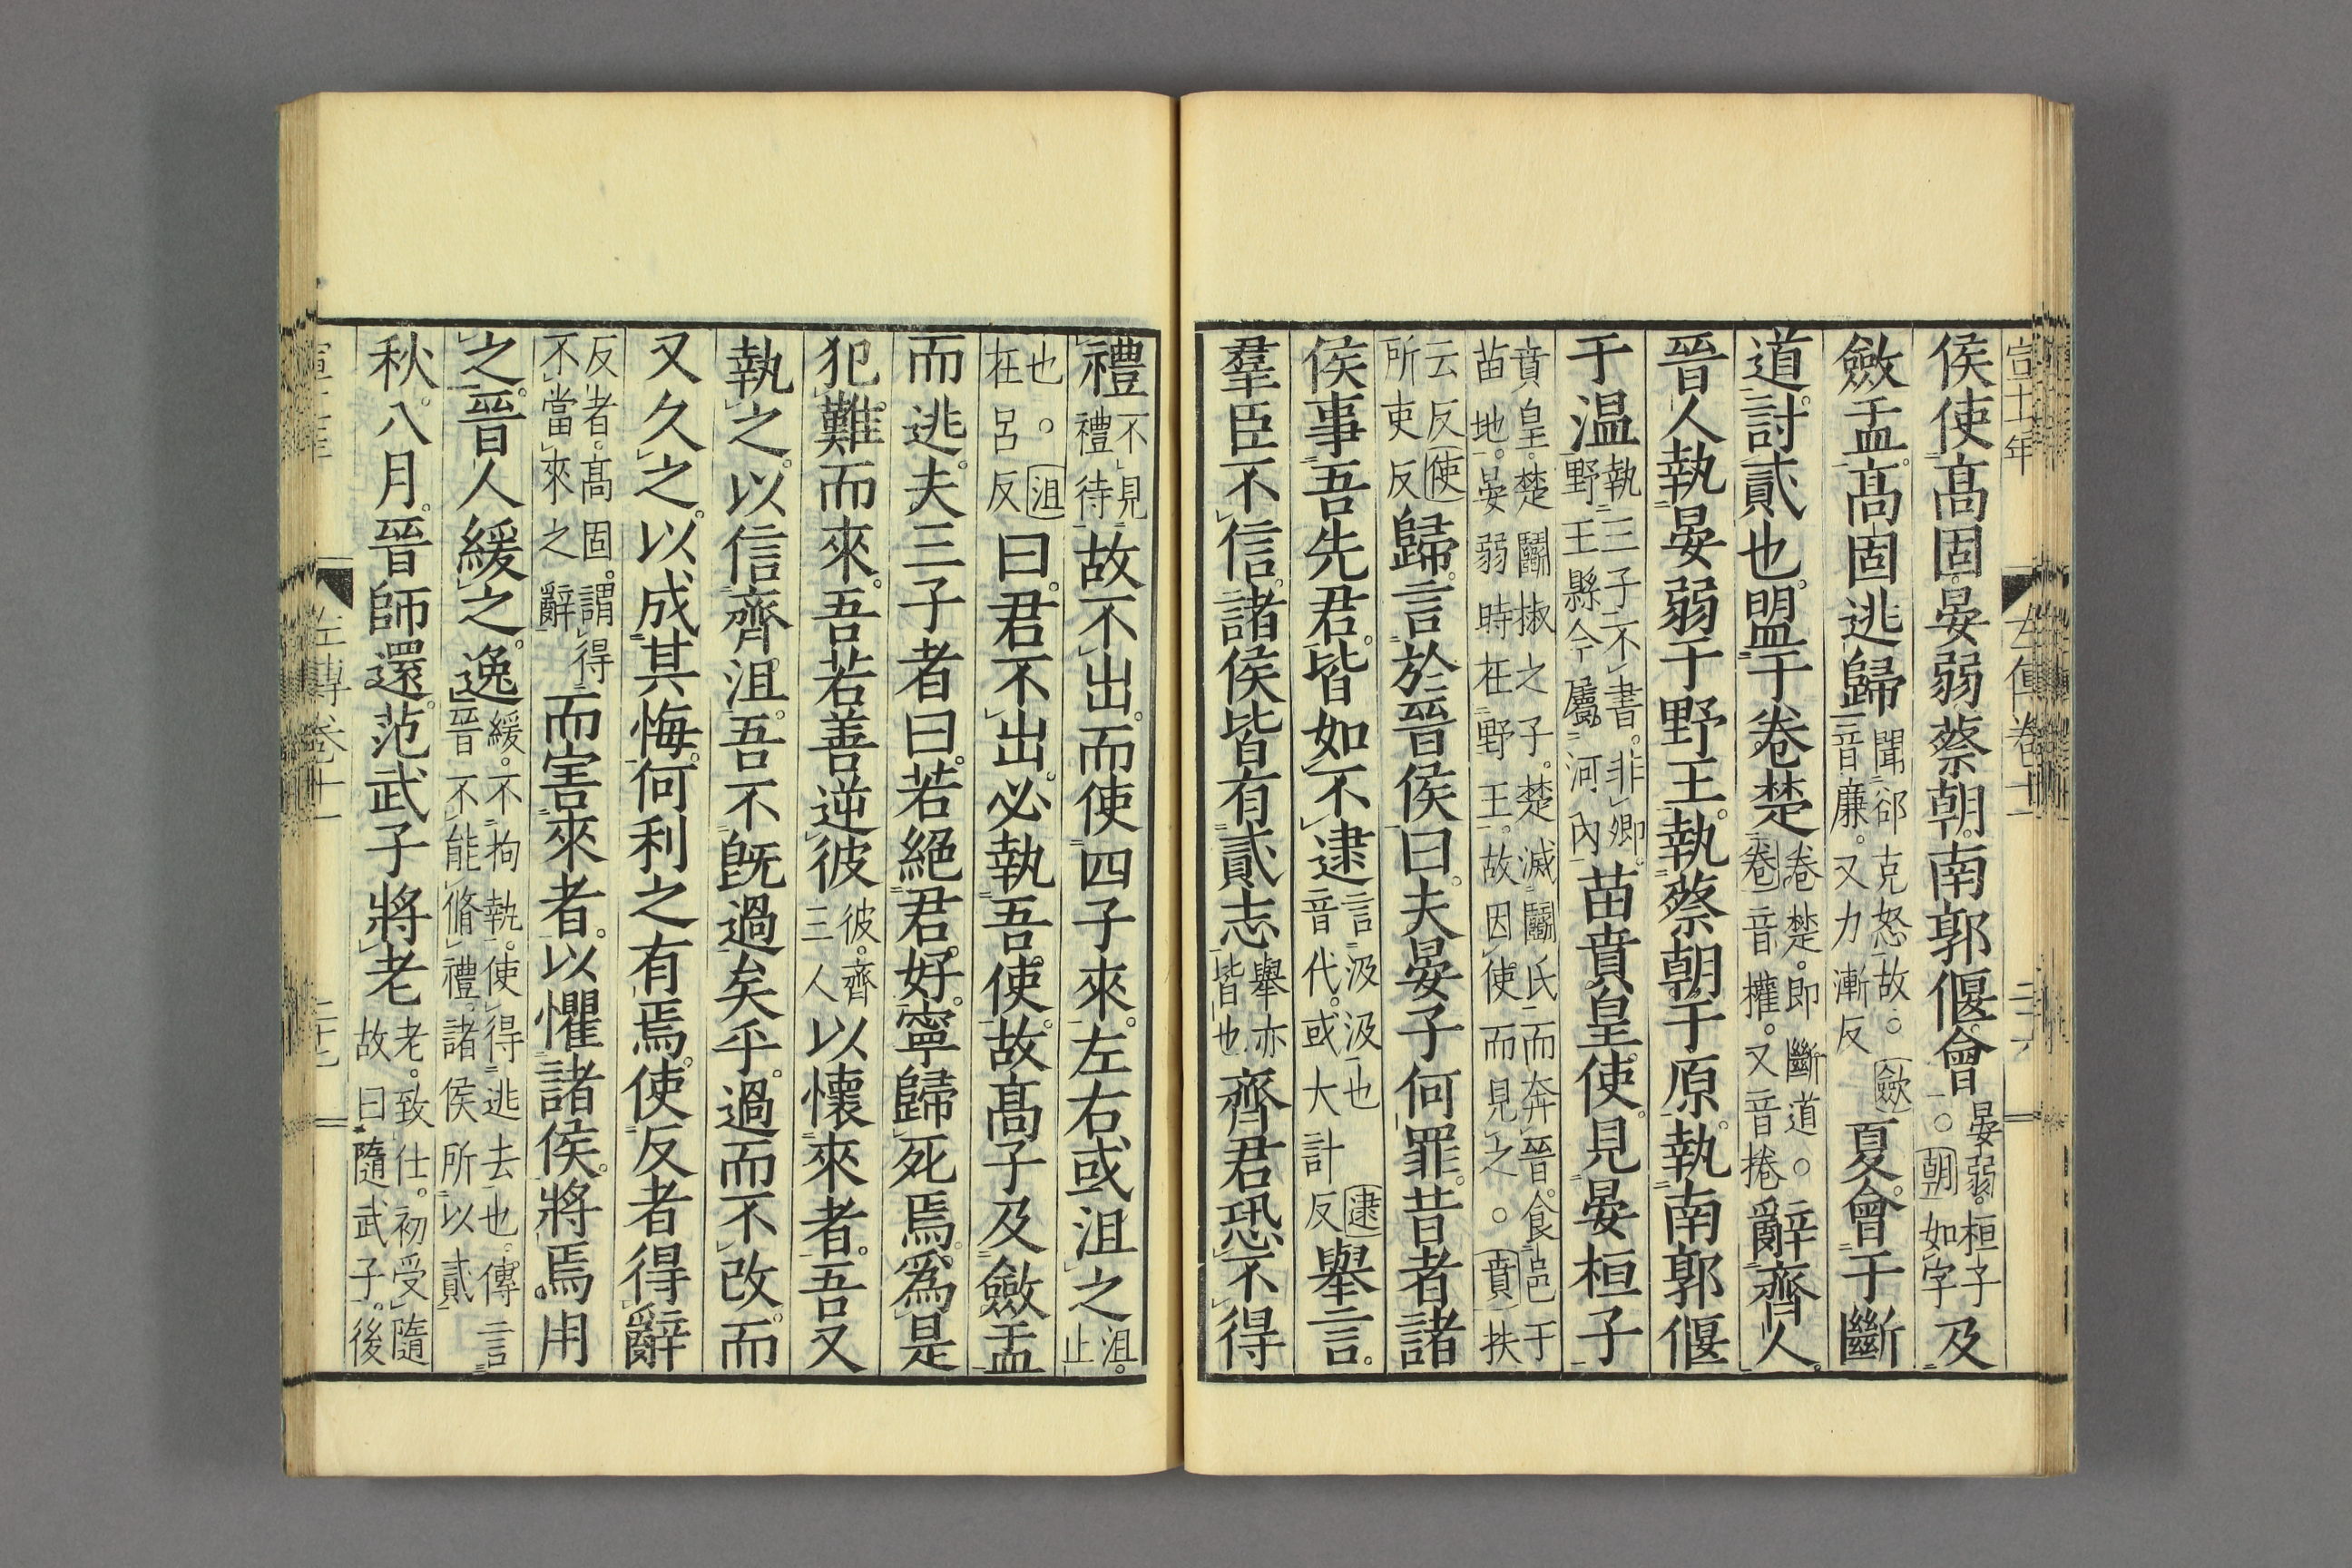 侯使髙固晏弱蔡朝南郭偃會晏弱桓子○朝如字及
斂盂髙固逃歸聞郤克怒故○斂音廉又力漸反夏會于斷
道討貳也盟于卷楚卷楚即斷道○卷音權又音捲辭齊人
晉人執晏弱于野王執蔡朝于原執南郭偃
于温執三子不書非卿野王縣今屬河內苗賁皇使見晏桓子
賁皇楚鬭椒之子楚滅鬭氏而奔晉食邑于苗地晏弱時在野王故因使而見之○賁扶
云反使所吏反歸言於晉侯曰夫晏子何罪昔者諸
侯事吾先君皆如不逮言汲汲也逮音代或大計反舉言
羣臣不信諸侯皆有貳志舉亦皆也齊君恐不得
禮不見禮待故不出而使四子來左右或沮之沮止
也○沮在呂反曰君不出必執吾使故髙子及斂盂
而逃夫三子者曰若絕君好寧歸死焉爲是
犯難而來吾若善逆彼彼齊三人以懷來者吾又
執之以信齊沮吾不既過矣乎過而不改而
又久之以成其悔何利之有焉使反者得辭
反者髙固謂得不當來之辭而害來者以懼諸侯將焉用
之晉人緩之逸緩不拘執使得逃去也傳言晉不能脩禮諸侯所以貳
秋八月晉師還范武子將老老致仕初受隨故曰隨武子後
宣十七年
左傳卷十一
左傳卷十一